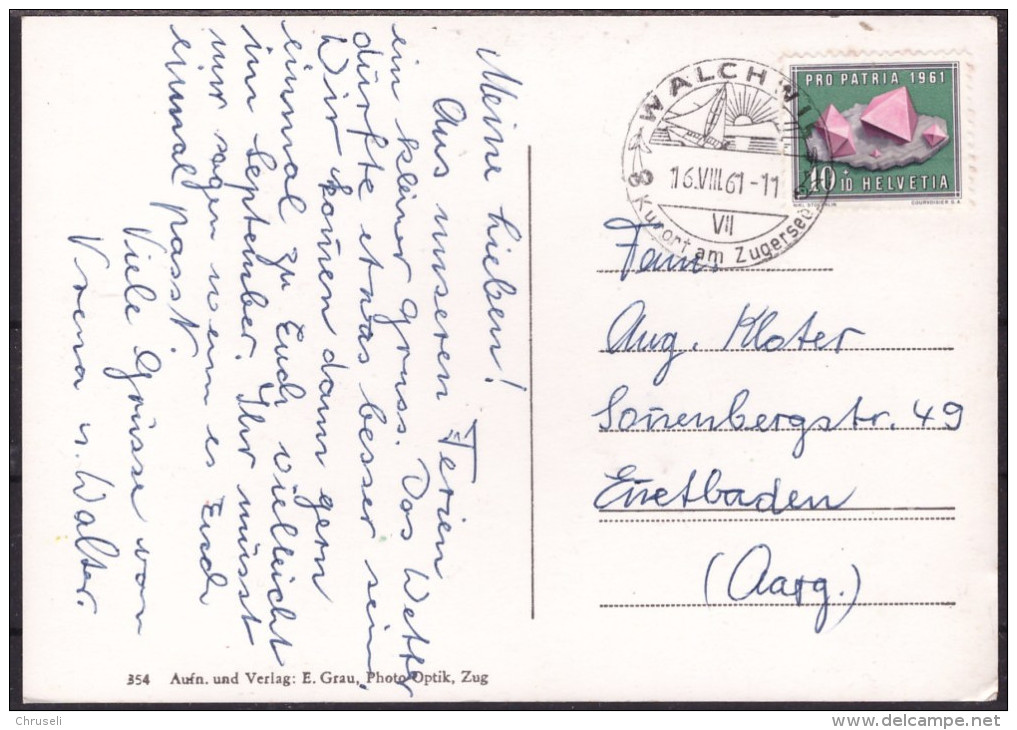 Meine Lieben!
Aus unseren Ferien
ein kleiner Gruss. Das Wetter
dürfte etwas besser sein.
Wir kom̄en dann gern
einmal zu Euch, vielleicht
im September. Ihr müsst
nur sagen wenn es Euch
einmal passt.
Viele Grüsse von
Vrena u. Walter.
WALCHWIL
16.VIII.61-11
VII
Kurort am Zugersee
PRO PATRIA 1961
10+10 HELVETIA
COURVOISIER S.A.
Fam.
Aug. Kloter
Son̄enbergstr. 49
En̄etbaden
(Aarg.)
354 Aufn. und Verlag: E. Grau, Photo-Optik, Zug
Chruseli
www.delcampe.net